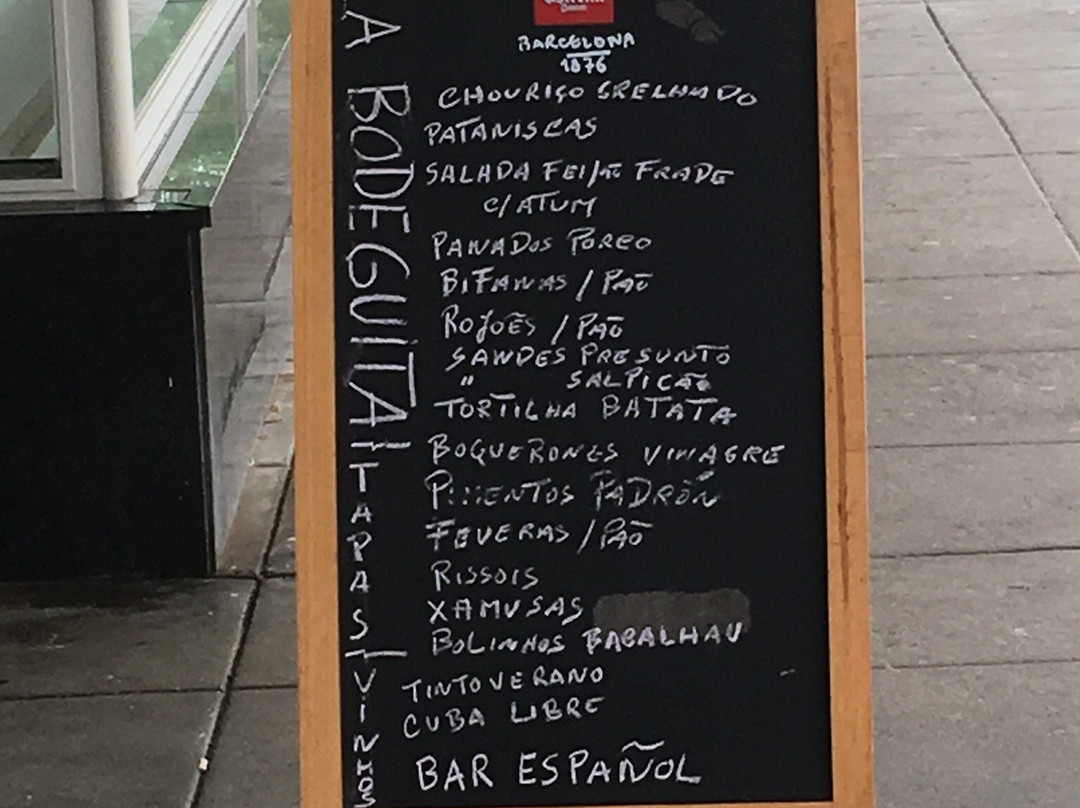 Damm
BARCELONA
1876
CHOURIÇO GRELHADO
PATANISCAS
SALADA FEIJÃO FRADE
C/ATUM
PANADOS PORCO
BIFANAS / PÃO
ROJOÊS / PÃO
SANDES PRESUNTO
" SALPICÃO
TORTILHA BATATA
BOQUERONES VINAGRE
PIMENTOS PADRÓN
FEVERAS / PÃO
RISSOIS
XAMUSAS
BOLINHOS BACALHAU
TINTOVERANO
CUBA LIBRE
BAR ESPAÑOL
LA BODEGUITA! TAPAS / VINHOS